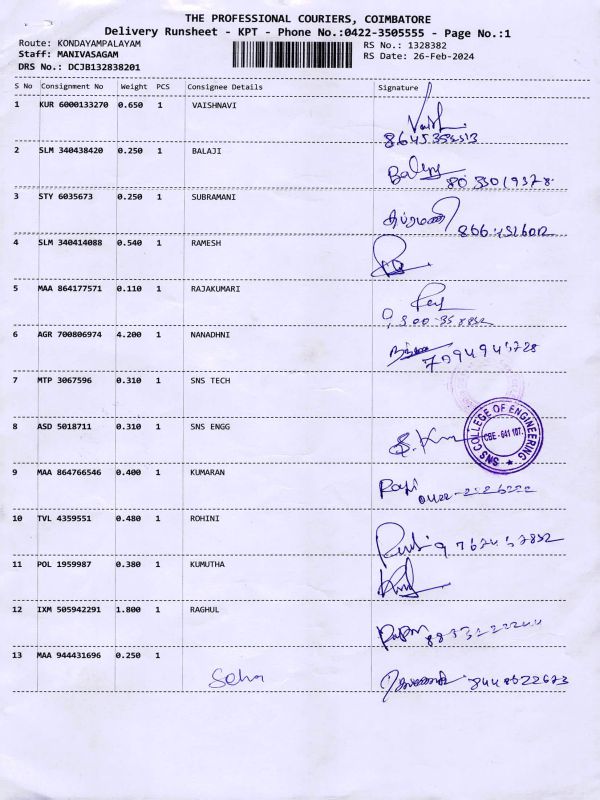 THE PROFESSIONAL COURIERS, COIMBATORE
Delivery Runsheet - KPT - Phone No.:0422-3505555 - Page No.:1
Route: KONDAYAMPALAYAM
Staff: MANIVASAGAM
DRS No.: DCJB132838201
RS No.: 1328382
RS Date: 26-Feb-2024
S No Consignment No Weight PCS Consignee Details Signature
1 KUR 6000133270 0.650 1 VAISHNAVI
2 SLM 340438420 0.250 1 BALAJI
Balaji
3 STY 6035673 0.250 1 SUBRAMANI
4 SLM 340414088 0.540 1 RAMESH
5 MAA 864177571 0.110 1 RAJAKUMARI
6 AGR 700806974 4.200 1 NANADHNI
7 MTP 3067596 0.310 1 SNS TECH
8 ASD 5018711 0.310 1 SNS ENGG
SNS COLLEGE OF ENGINEERING
CBE - 641 107.
9 MAA 864766546 0.400 1 KUMARAN
10 TVL 4359551 0.480 1 ROHINI
11 POL 1959987 0.380 1 KUMUTHA
12 IXM 505942291 1.800 1 RAGHUL
13 MAA 944431696 0.250 1